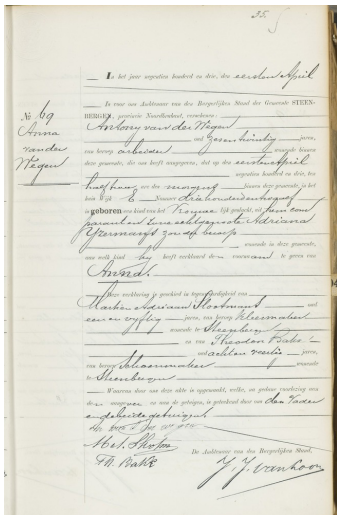 35.
In het jaar negentien honderd en drie, den eersten April
is voor ons Ambtenaar van den Burgerlijken Stand der Gemeente STEEN-
BERGEN, provincie Noordbrabant, verschenen:
No 69
Anna
van der
Wegen
Antony van der Wegen
oud zes en twintig jaren,
van beroep arbeider wonende binnen
deze gemeente, die ons heeft aangegeven, dat op den eersten April
negentien honderd en drie, ten
half twee ure des morgens binnen deze gemeente, in het
huis wijk E Nummer driehonderd
is geboren een kind van het Vrouwe lijk geslacht, uit hem com-
parant en zijne echtgenoote Adriana
IJzermans zonder beroep
wonende in deze gemeente,
aan welk kind hij heeft verklaard den voornaam te geven van
Anna.
Deze verklaring is geschied in tegenwoordigheid van
Adriaan Slootmans oud
een en vijftig jaren, van beroep kleermaker
wonende te Steenbergen
en van Theodoor Bakx
oud acht en veertig jaren,
van beroep schoenmaker wonende
te Steenbergen
Waarvan door ons deze akte is opgemaakt, welke, na gedane voorlezing aan
den aangever en aan de getuigen, is geteekend door ons, den Vader
en de beide getuigen.
Th. Bakx
De Ambtenaar van den Burgerlijken Stand,
J. J. van Loon